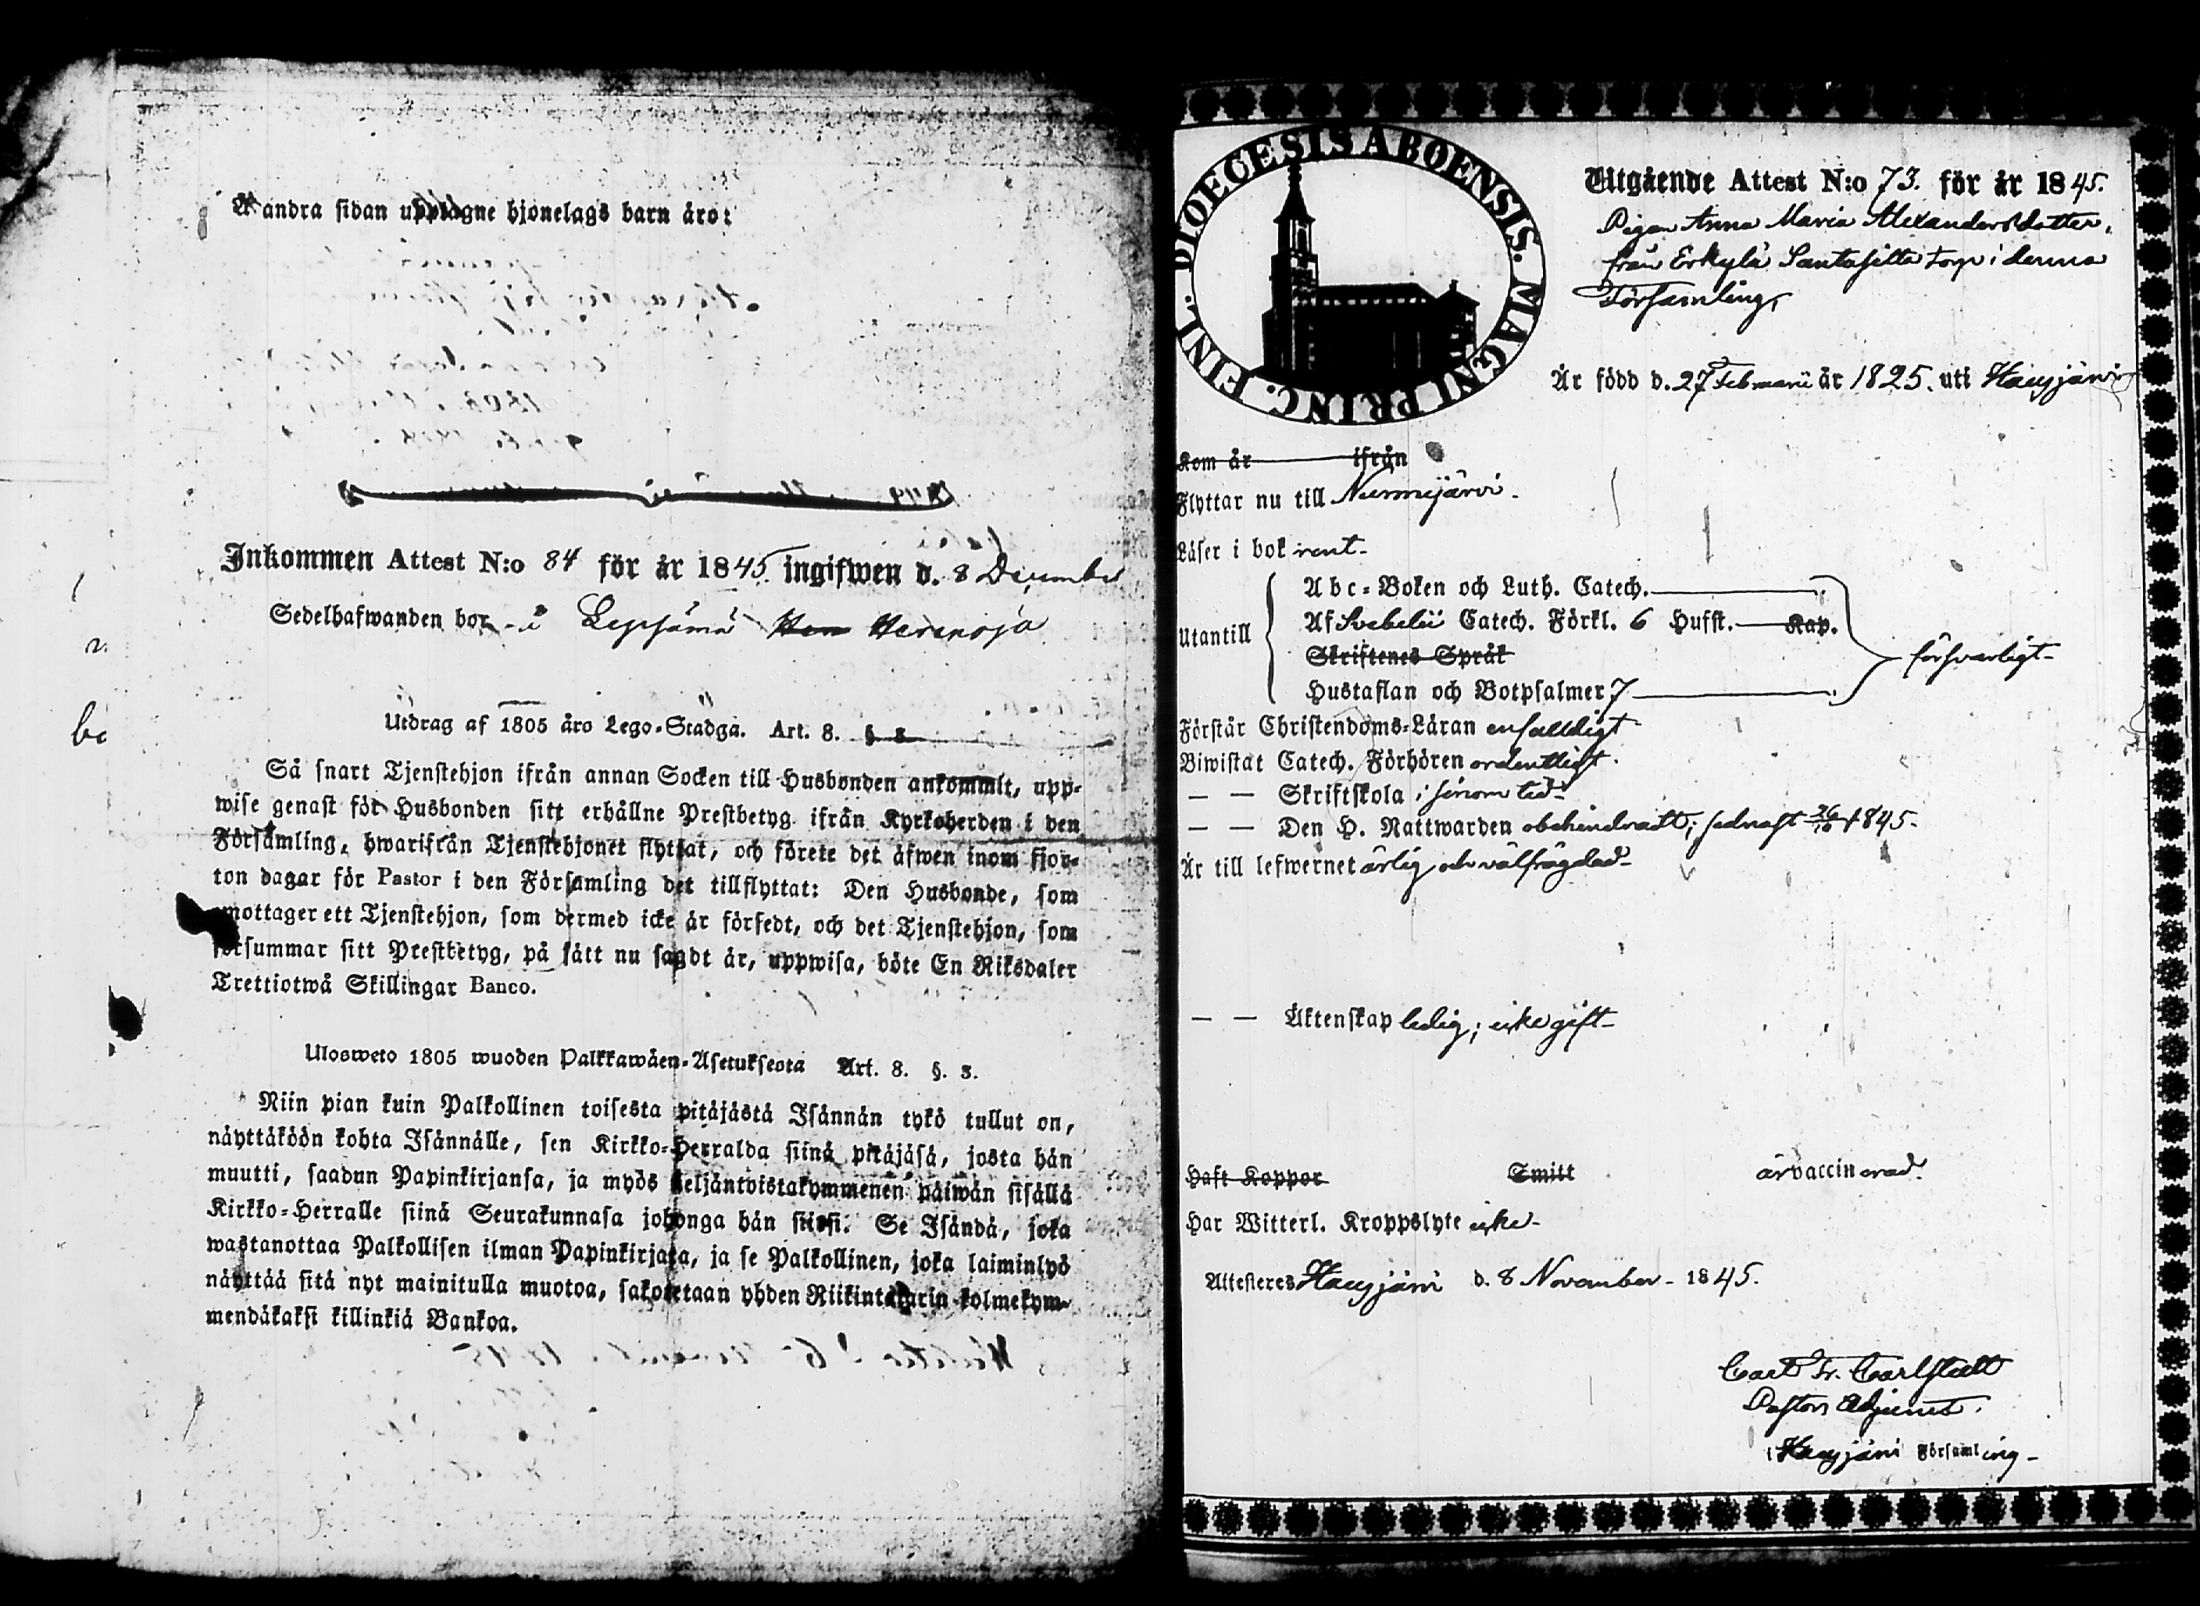 Å andra sidan upptagne hjonelags barn äro:
Inkommen Attest N:o 84 för år 1845. ingifwen d. 8 December
Sedelhafwanden bor i Lepsämä
Utdrag af 1805 åro Lego-Stadga. Art. 8. § 3
Så snart Tjenstehjon ifrån annan Socken till Husbonden ankommit, upp-
wise genast för Husbonden sitt erhållne Prestbetyg ifrån Kyrkoherden i den
Församling, hwarifrån Tjenstehjonet flyttat, och förete det äfwen inom fjor-
ton dagar för Pastor i den Församling det tillflyttat: Den Husbonde, som
emottager ett Tjenstehjon, som dermed icke är försedt, och det Tjenstehjon, som
försummar sitt Prestbetyg, på sätt nu sagdt är, uppwisa, böte En Riksdaler
Trettiotwå Skillingar Banco.
Ulosweto 1805 wuoden Palkkawäen-Asetuksesta Art. 8. §. 3.
Niin pian kuin Palkollinen toisesta pitäjästä Isännän tykö tullut on,
näyttäköön kohta Isännälle, sen Kirkko-Herralda siinä pitäjäsä, josta hän
muutti, saadun Papinkirjansa, ja myös neljäntoistakymmenen päiwän sisällä
Kirkko-Herralle siinä Seurakunnasa johonga hän siirsi. Se Isändä, joka
wastanottaa Palkollisen ilman Papinkirjata, ja se Palkollinen, joka laiminlyö
näyttää sitä nyt mainitulla muotoa, sakotetaan yhden Riikintalarin kolmekym-
mendäkaksi killinkiä Bankoa.
DIOECESIS ABOENSIS. MAGNI PRINC. FINL.
Utgående Attest N:o 73. för år 1845.
Pigan Anna Maria Alexandersdotter,
från Erkylä Santasilta Torp i denna
Församling,
Är född d. 27 Februarii år 1825. uti Hausjärvi
Kom år ifrån
Flyttar nu till Nurmijärvi.
Läser i bok rent.
Utantill
Abc-Boken och Luth. Catech.
Af Svebelii Catech. Förkl. 6 Hufst. Kap.
Skriftenes Språk
Hustaflan och Botpsalmer 7
försvarligt
Förstår Christendoms-Läran enfalldigt
Biwistat Catech. Förhören ordentligt.
— — Skriftskola i sinom tid
— — Den H. Nattwarden obehindradt; sednast 26/10 1845.
Är till lefwernet ärlig och välfrägdad
— — Äktenskap ledig; icke gift
Haft Koppor Smitt är vaccinerad.
Har Witterl. Kroppslyte icke
Attesteres Hausjärvi d. 8 November 1845.
Carl Fr. Carlstedt
Pastors Adjunct.
i Hausjärvi Församling